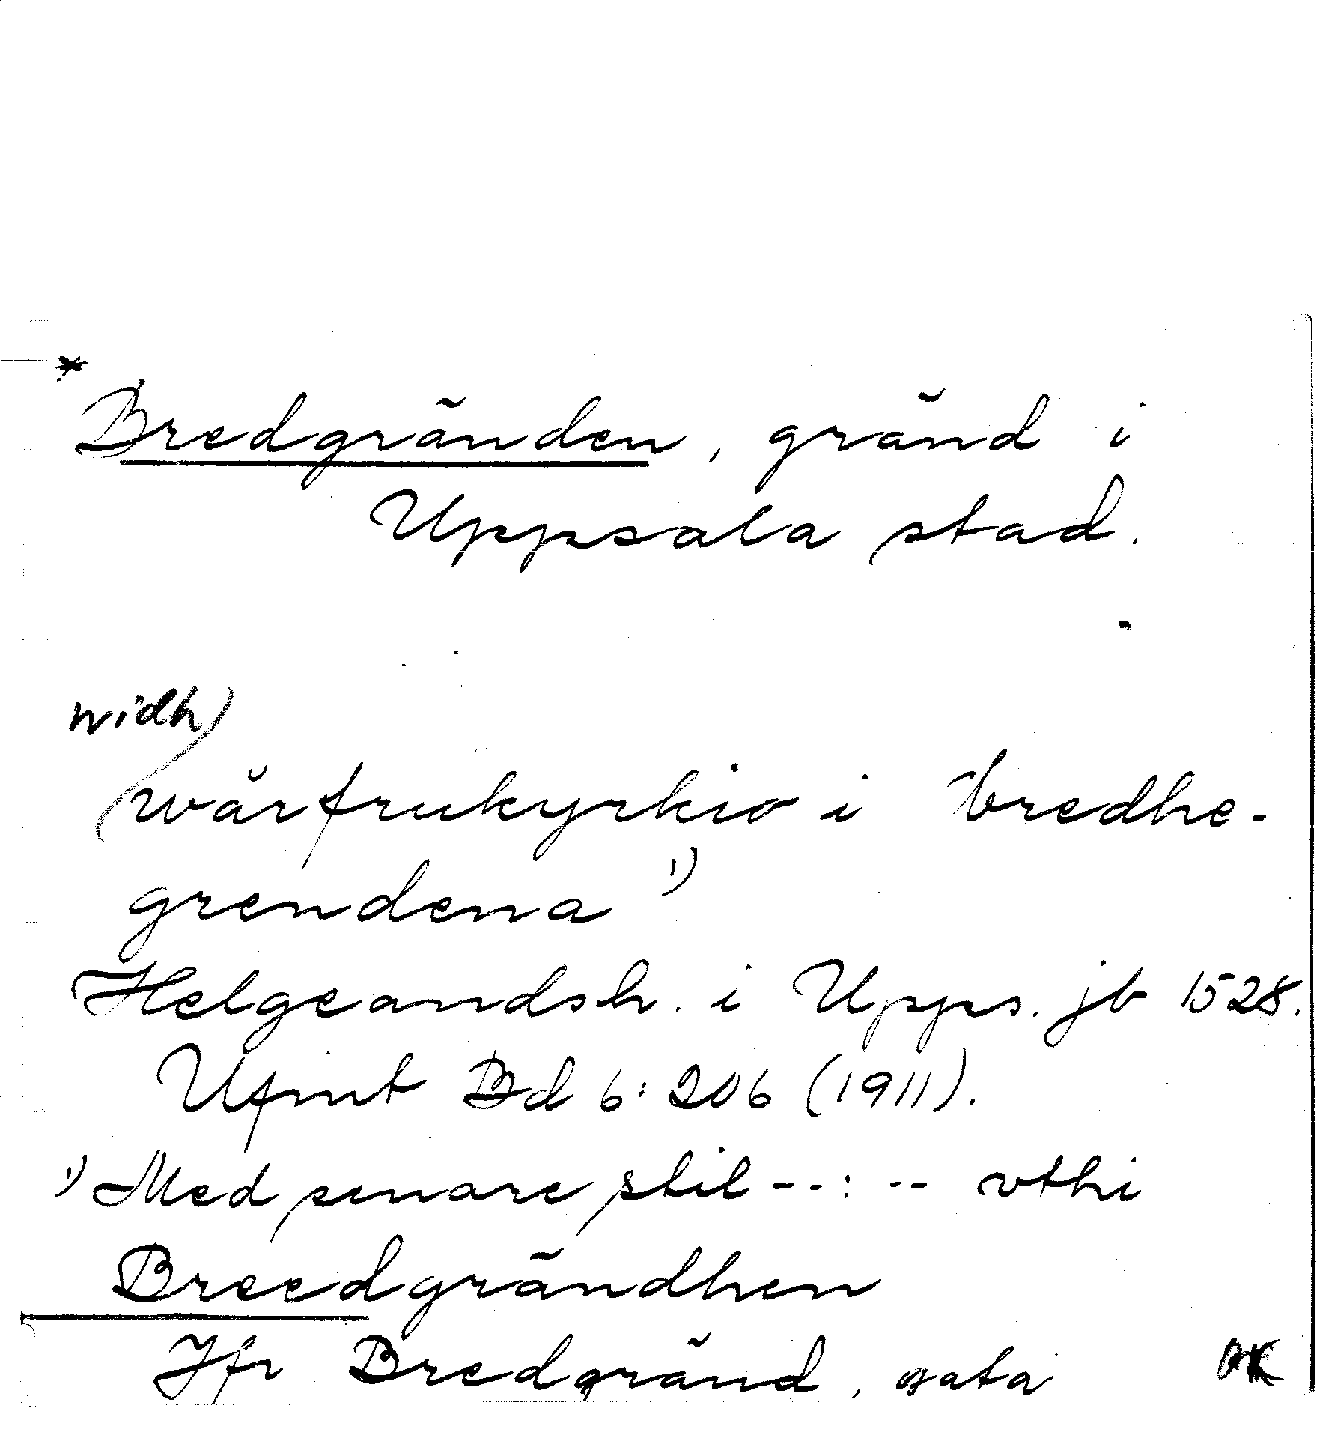 *
Bredgränden, gränd i
Uppsala stad.
widh)
(wårfrukyrkio i bredhe-
grendena 1)
Helgeandsh. i Upps. jb 1528.
Ufmt Bd 6: 206 (1911).
1) Med senare stil --:-- vthi
Breedgrändhen
Jfr Bredgränd, gata